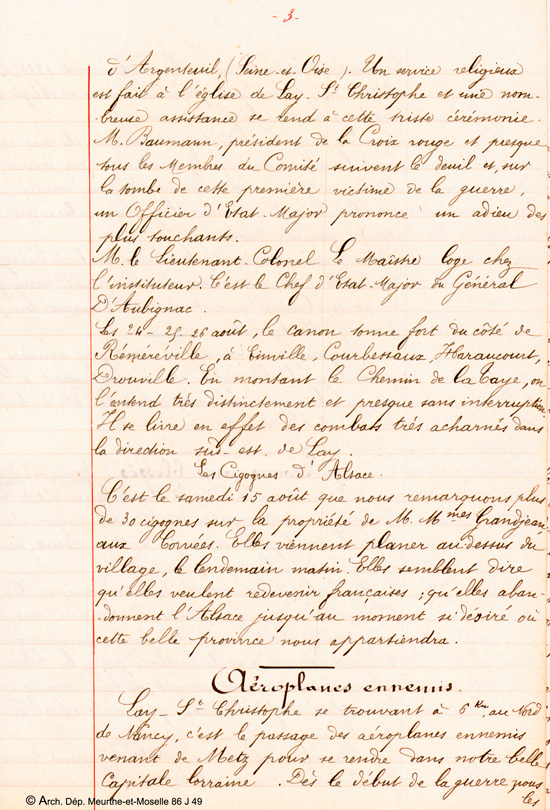 - 3.
d'Argenteuil, (Seine-et-Oise). Un service religieux
est fait à l'église de Lay-St Christophe et une nom-
breuse assistance se rend à cette triste cérémonie.
M. Baumann, président de la Croix rouge et presque
tous les Membres du Comité suivent le deuil et, sur
la tombe de cette première victime de la guerre,
un Officier d'Etat-Major prononce un adieu des
plus touchants.
M. le Lieutenant-Colonel Le Maistre loge chez
l'instituteur. C'est le Chef d'Etat-Major du Général
D'Aubignac.
Les 24-25-26 août, le canon tonne fort du côté de
Réméréville, à Einville, Courbessaux, Haraucourt,
Drouville. En montant le Chemin de la Taye, on
l'entend très distinctement et presque sans interruption.
Il se livre en effet des combats très acharnés dans
la direction sud-est de Lay.
Les Cigognes d'Alsace.
C'est le samedi 15 août que nous remarquons plus
de 30 cigognes sur la propriété de M. Mmes Grandjean,
aux Corvées. Elles viennent planer au-dessus du
village, le lendemain matin. Elles semblent dire
qu'elles veulent redevenir françaises ; qu'elles aban-
-donnent l'Alsace jusqu'au moment si désiré où
cette belle province nous appartiendra.
Aéroplanes ennemis.
Lay-St Christophe se trouvant à 6 Km. au Nord
de Nancy, c'est le passage des aéroplanes ennemis
venant de Metz pour se rendre dans notre belle
Capitale lorraine. Dès le début de la guerre nous
les
© Arch. Dép. Meurthe-et-Moselle 86 J 49